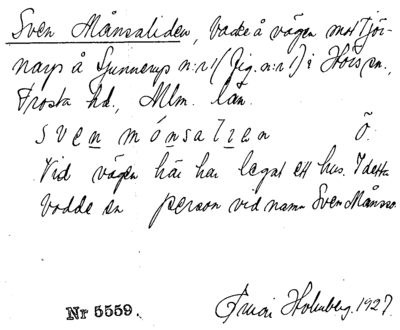 Sven Månsaliden, backe å vägen mot Tjör-
narp å Gunnerup n:r 1 (fig. n:r 1) i Hörs sn.,
Frosta hd., Mlm. län.
sven mónsalıen õ.
Vid vägen här har legat ett hus. I detta
bodde en person vid namn Sven Månsson
Nr 5559.
Holmberg. 1927.